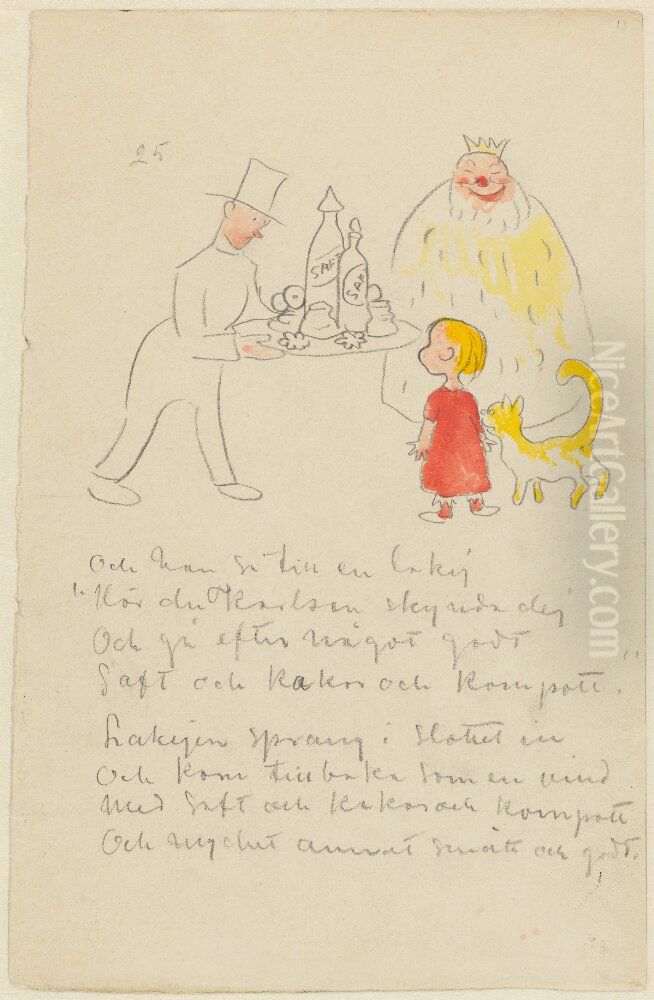 25
SAFT
SAF
Och han sa till en lakej
"Hör du Karlsen skynda dej
Och gå efter något godt
Saft och kakor och kompott."
Lakejen sprang i slottet in
Och kom tillbaka som en vind
Med saft och kakor och kompott
Och mycket annat smått och godt.
NiceArtGallery.com